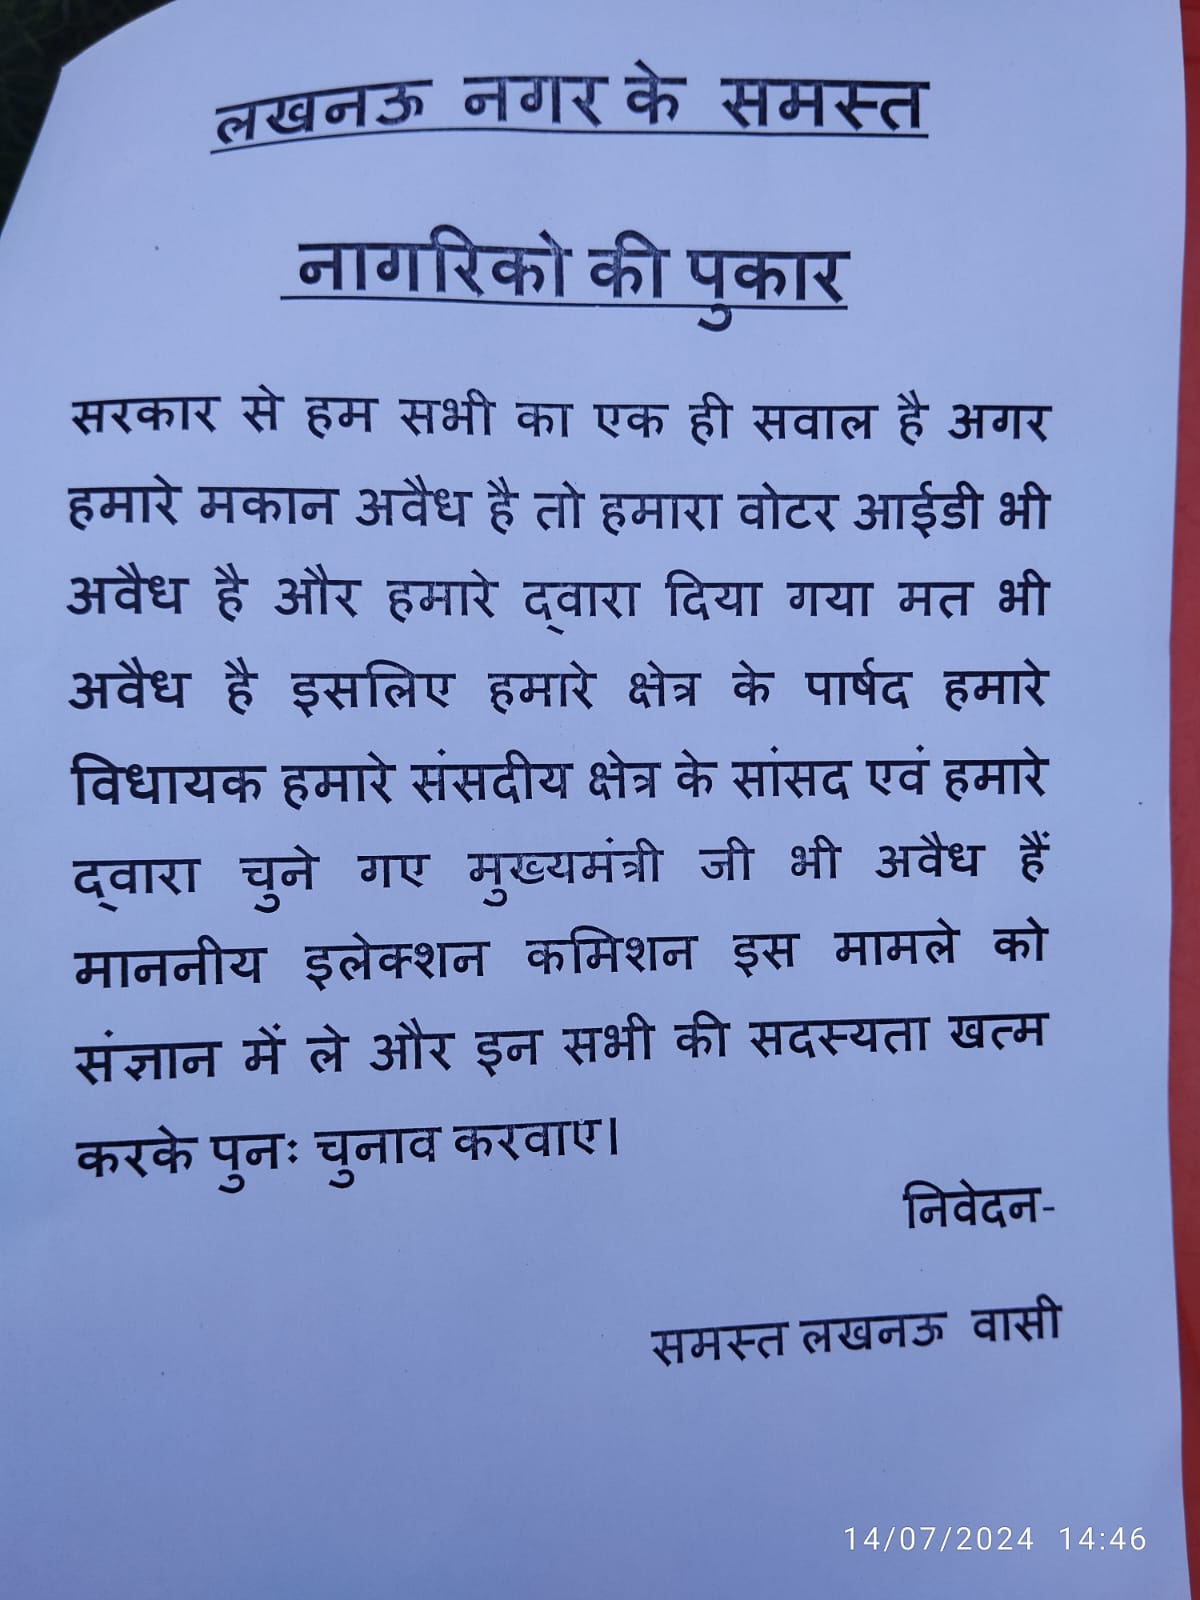 लखनऊ नगर के समस्त
नागरिको की पुकार
सरकार से हम सभी का एक ही सवाल है अगर
हमारे मकान अवैध है तो हमारा वोटर आईडी भी
अवैध है और हमारे द्वारा दिया गया मत भी
अवैध है इसलिए हमारे क्षेत्र के पार्षद हमारे
विधायक हमारे संसदीय क्षेत्र के सांसद एवं हमारे
द्वारा चुने गए मुख्यमंत्री जी भी अवैध हैं
माननीय इलेक्शन कमिशन इस मामले को
संज्ञान में ले और इन सभी की सदस्यता खत्म
करके पुनः चुनाव करवाए।
निवेदन-
समस्त लखनऊ वासी
14/07/2024 14:46